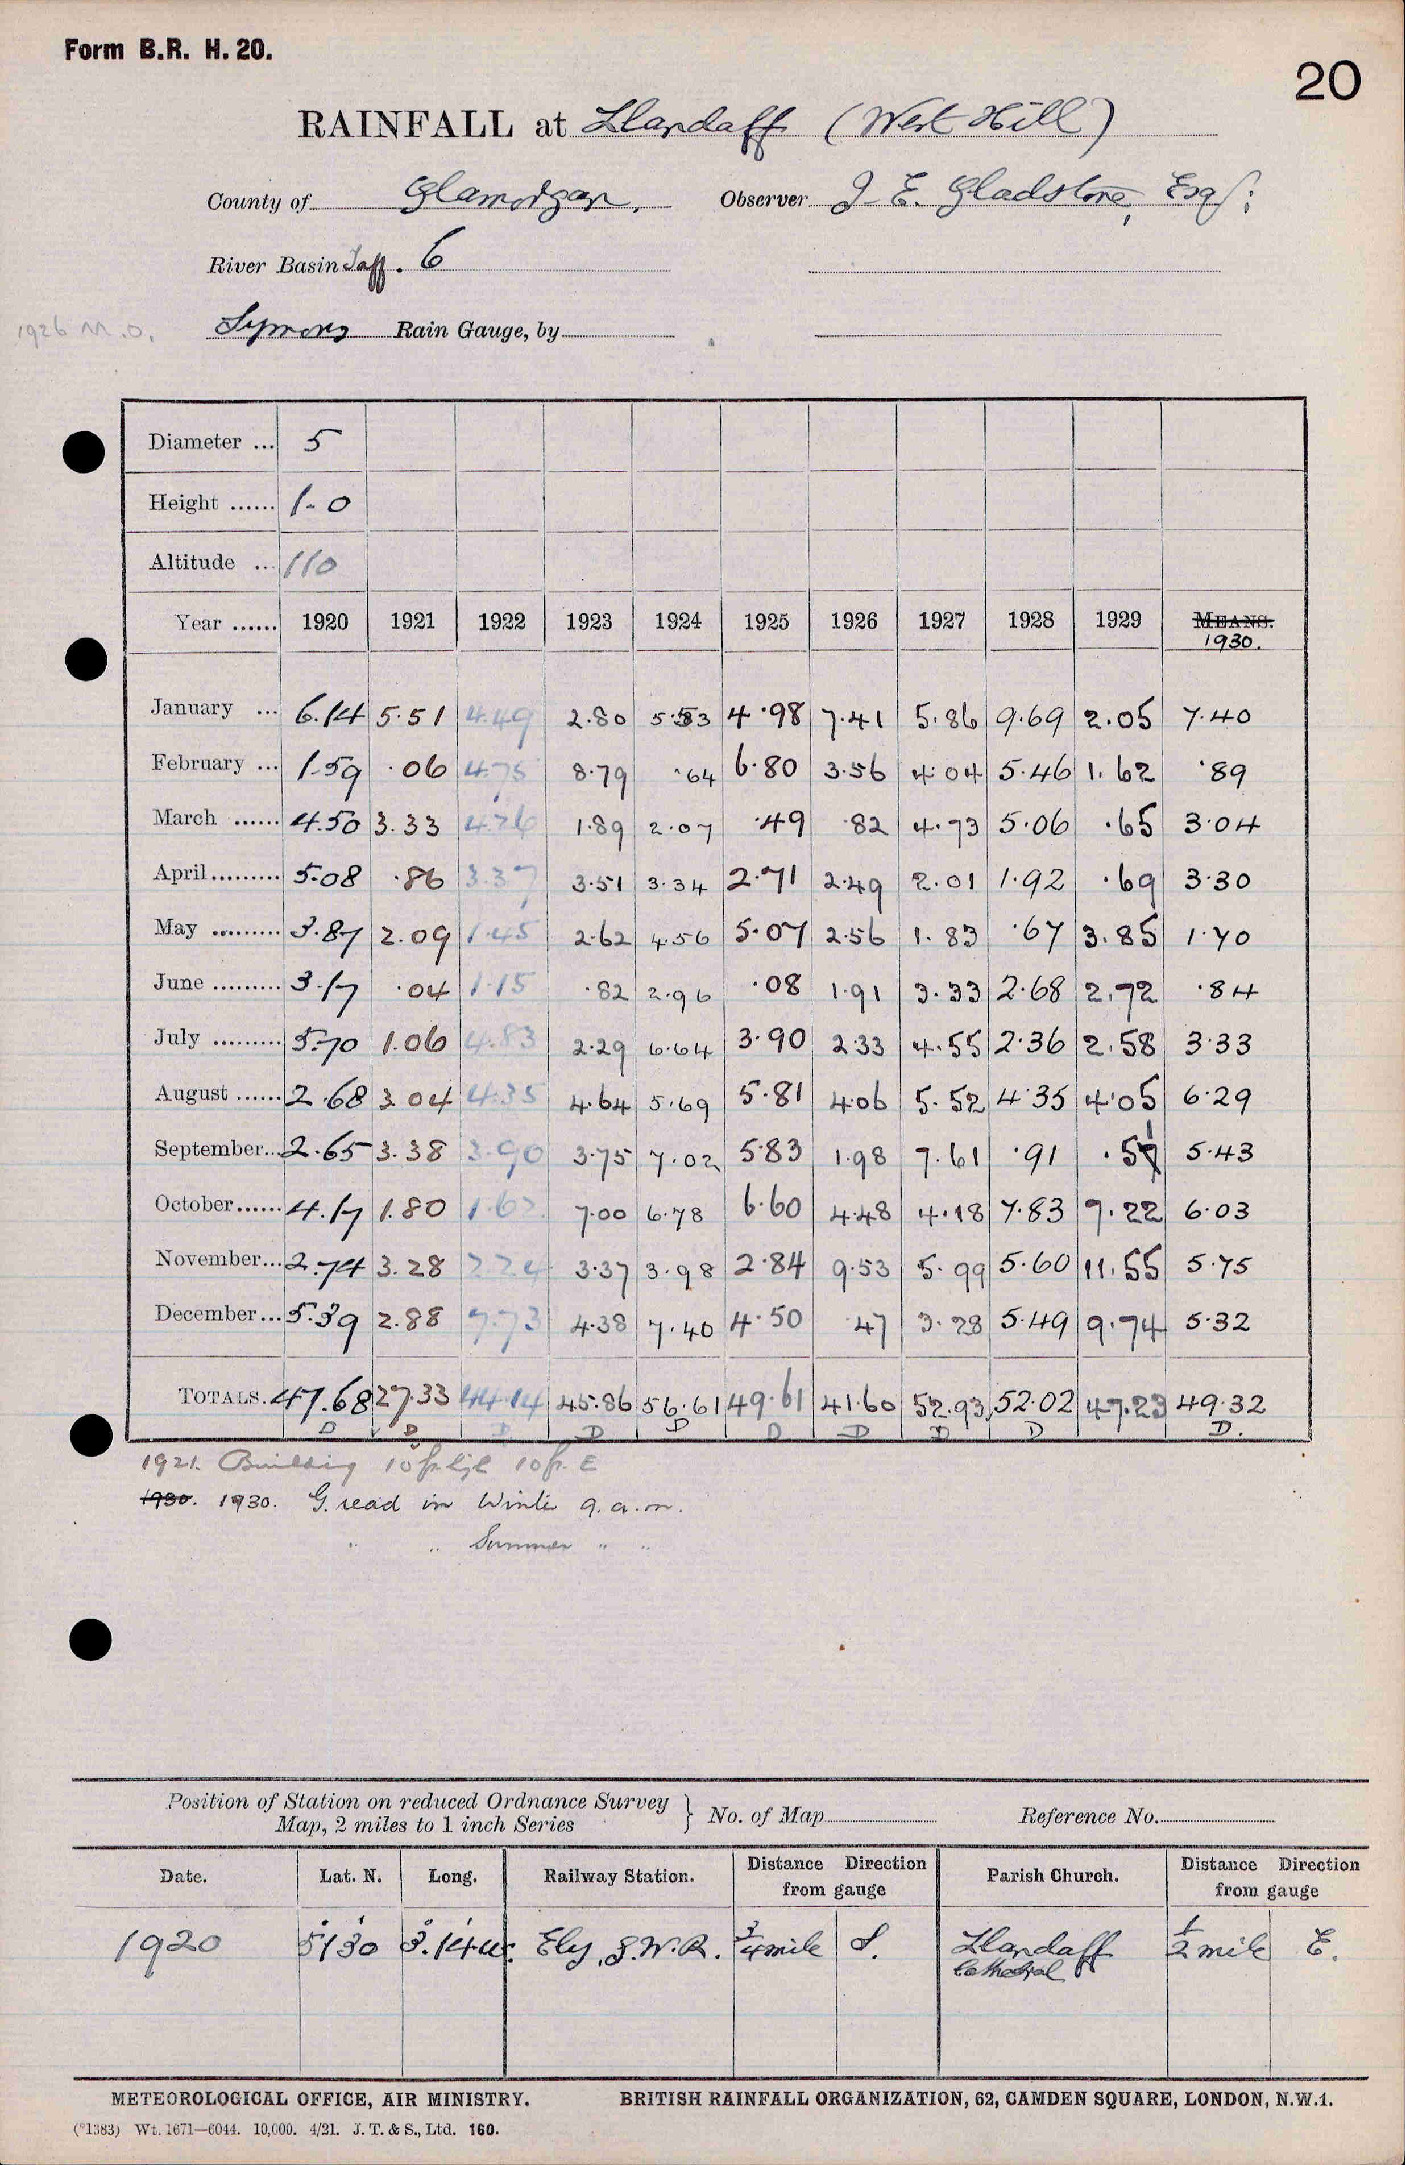 Form B.R. H. 20.
20
RAINFALL at Llandaff (West Hill)
County of Glamorgan, Observer J. E. Gladstone, Esq:
River Basin Taff. 6
1926 M.O. Symons Rain Gauge, by
Diameter ... 5
Height ...... 1-0
Altitude ... 110
Year ...... 1920 1921 1922 1923 1924 1925 1926 1927 1928 1929 MEANS. 1930.
January ... 6.14 5.51 4.49 2.80 5.53 4.98 7.41 5.86 9.69 2.05 7.40
February ... 1.59 .06 4.75 8.79 .64 6.80 3.56 4.04 5.46 1.62 .89
March ...... 4.50 3.33 4.26 1.89 2.07 .49 .82 4.73 5.06 .65 3.04
April ......... 5.08 .86 3.37 3.51 3.34 2.71 2.49 2.01 1.92 .69 3.30
May ......... 3.87 2.09 1.45 2.62 4.56 5.07 2.56 1.83 .67 3.85 1.70
June ......... 3.17 .04 1.15 .82 2.96 .08 1.91 3.33 2.68 2.72 .84
July ......... 5.70 1.06 4.83 2.29 6.64 3.90 2.33 4.55 2.36 2.58 3.33
August ...... 2.68 3.04 4.35 4.64 5.69 5.81 4.06 5.52 4.35 4.05 6.29
September... 2.65 3.38 3.90 3.75 7.02 5.83 1.98 7.61 .91 .51 5.43
October...... 4.17 1.80 1.62 7.00 6.78 6.60 4.48 4.18 7.83 7.22 6.03
November... 2.74 3.28 2.24 3.37 3.98 2.84 9.53 5.99 5.60 11.55 5.75
December... 5.39 2.88 7.73 4.38 7.40 4.50 .47 3.28 5.49 9.74 5.32
TOTALS. 47.68 27.33 44.14 45.86 56.61 49.61 41.60 52.93 52.02 47.23 49.32
D D D D D D D D D D.
1921. Building 10 ft. E
1930. 1930. G. read in Winter 9. a.m.
" " Summer " "
Position of Station on reduced Ordnance Survey Map, 2 miles to 1 inch Series } No. of Map Reference No.
Date. Lat. N. Long. Railway Station. Distance Direction from gauge Parish Church. Distance Direction from gauge
1920 51°30' 3°.14'W. Ely, G.W.R. 3/4 mile S. Llandaff Cathedral 1/2 mile E.
METEOROLOGICAL OFFICE, AIR MINISTRY. BRITISH RAINFALL ORGANIZATION, 62, CAMDEN SQUARE, LONDON, N.W.1.
(*1383) Wt. 1671—6044. 10,000. 4/21. J. T. & S., Ltd. 160.